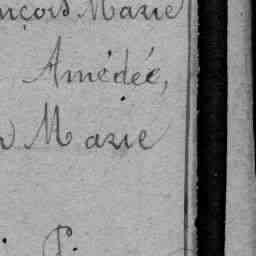 nçois Marie
Amédée,
Marie